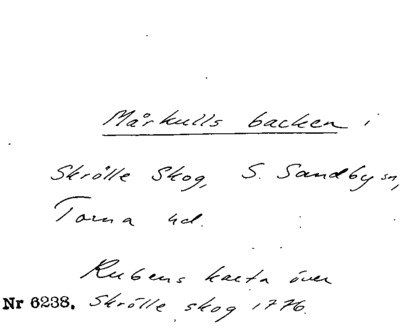 Mårkulls backen i
Skrölle Skog, S. Sandby sn,
Torna hd.
Rubens karta över
Nr 6238. Skrölle skog 1776.